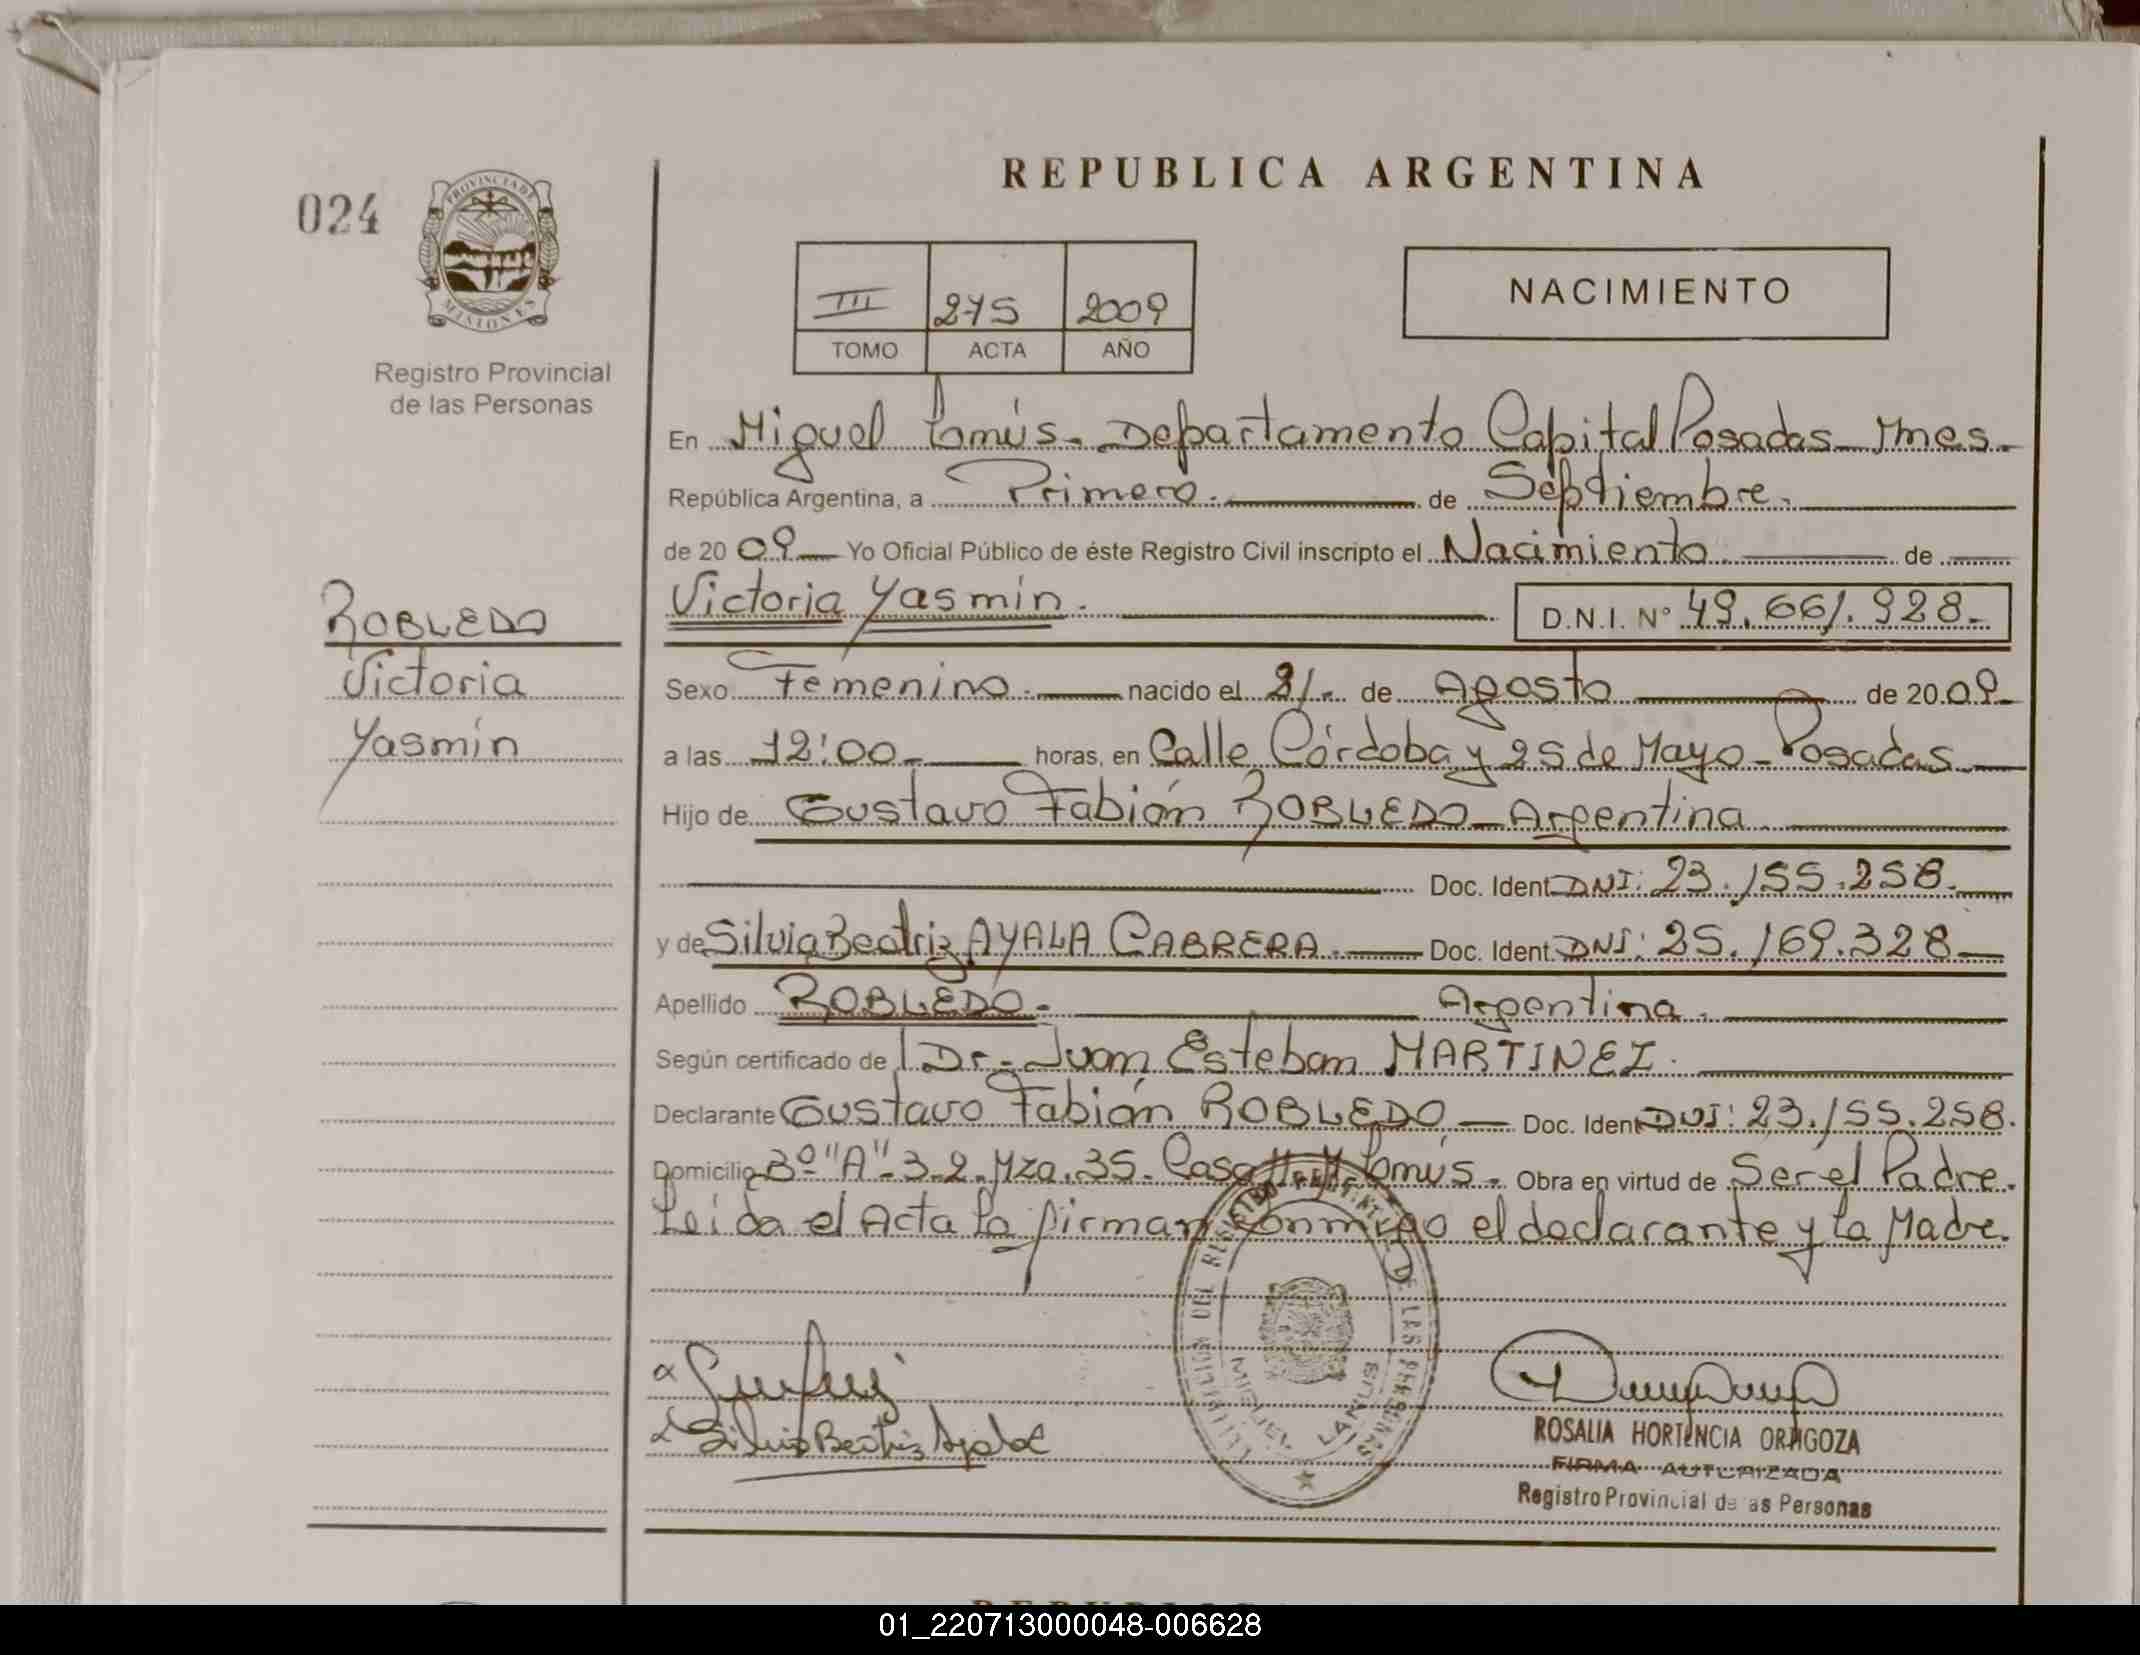 REPUBLICA ARGENTINA
024
PROVINCIA DE
MISIONES
Registro Provincial
de las Personas
III 275 2009
TOMO ACTA AÑO
NACIMIENTO
En Miguel Lanús. Departamento Capital Posadas Mnes.
República Argentina, a Primero. de Septiembre.
de 20 09 Yo Oficial Público de éste Registro Civil inscripto el Nacimiento. de
ROBLEDO
Victoria
Yasmín
Victoria Yasmín. D.N.I. Nº 49.661.928.-
Sexo Femenino. nacido el 21. de Agosto de 20 09
a las 12:00 horas, en Calle Córdoba y 25 de Mayo - Posadas
Hijo de Gustavo Fabián ROBLEDO - Argentina
Doc. Ident. DNI: 23.155.258.
y de Silvia Beatriz AYALA CABRERA. Doc. Ident. DNI: 25.169.328
Apellido ROBLEDO. Argentina.
Según certificado de Dr. Juan Esteban MARTINEZ.
Declarante Gustavo Fabián ROBLEDO Doc. Ident DNI: 23.155.258.
Domicilio Bº "A" 3-2. Mza. 35. Casa M. Lanús. Obra en virtud de Ser el Padre.
Leída el Acta la firman conmigo el declarante y la Madre.
DELEGACION DEL REGISTRO DE LAS PERSONAS
MIGUEL LANUS
Silvia Beatriz Ayala C
ROSALIA HORTENCIA ORAGOZA
FIRMA AUTORIZADA
Registro Provincial de las Personas
01_220713000048-006628